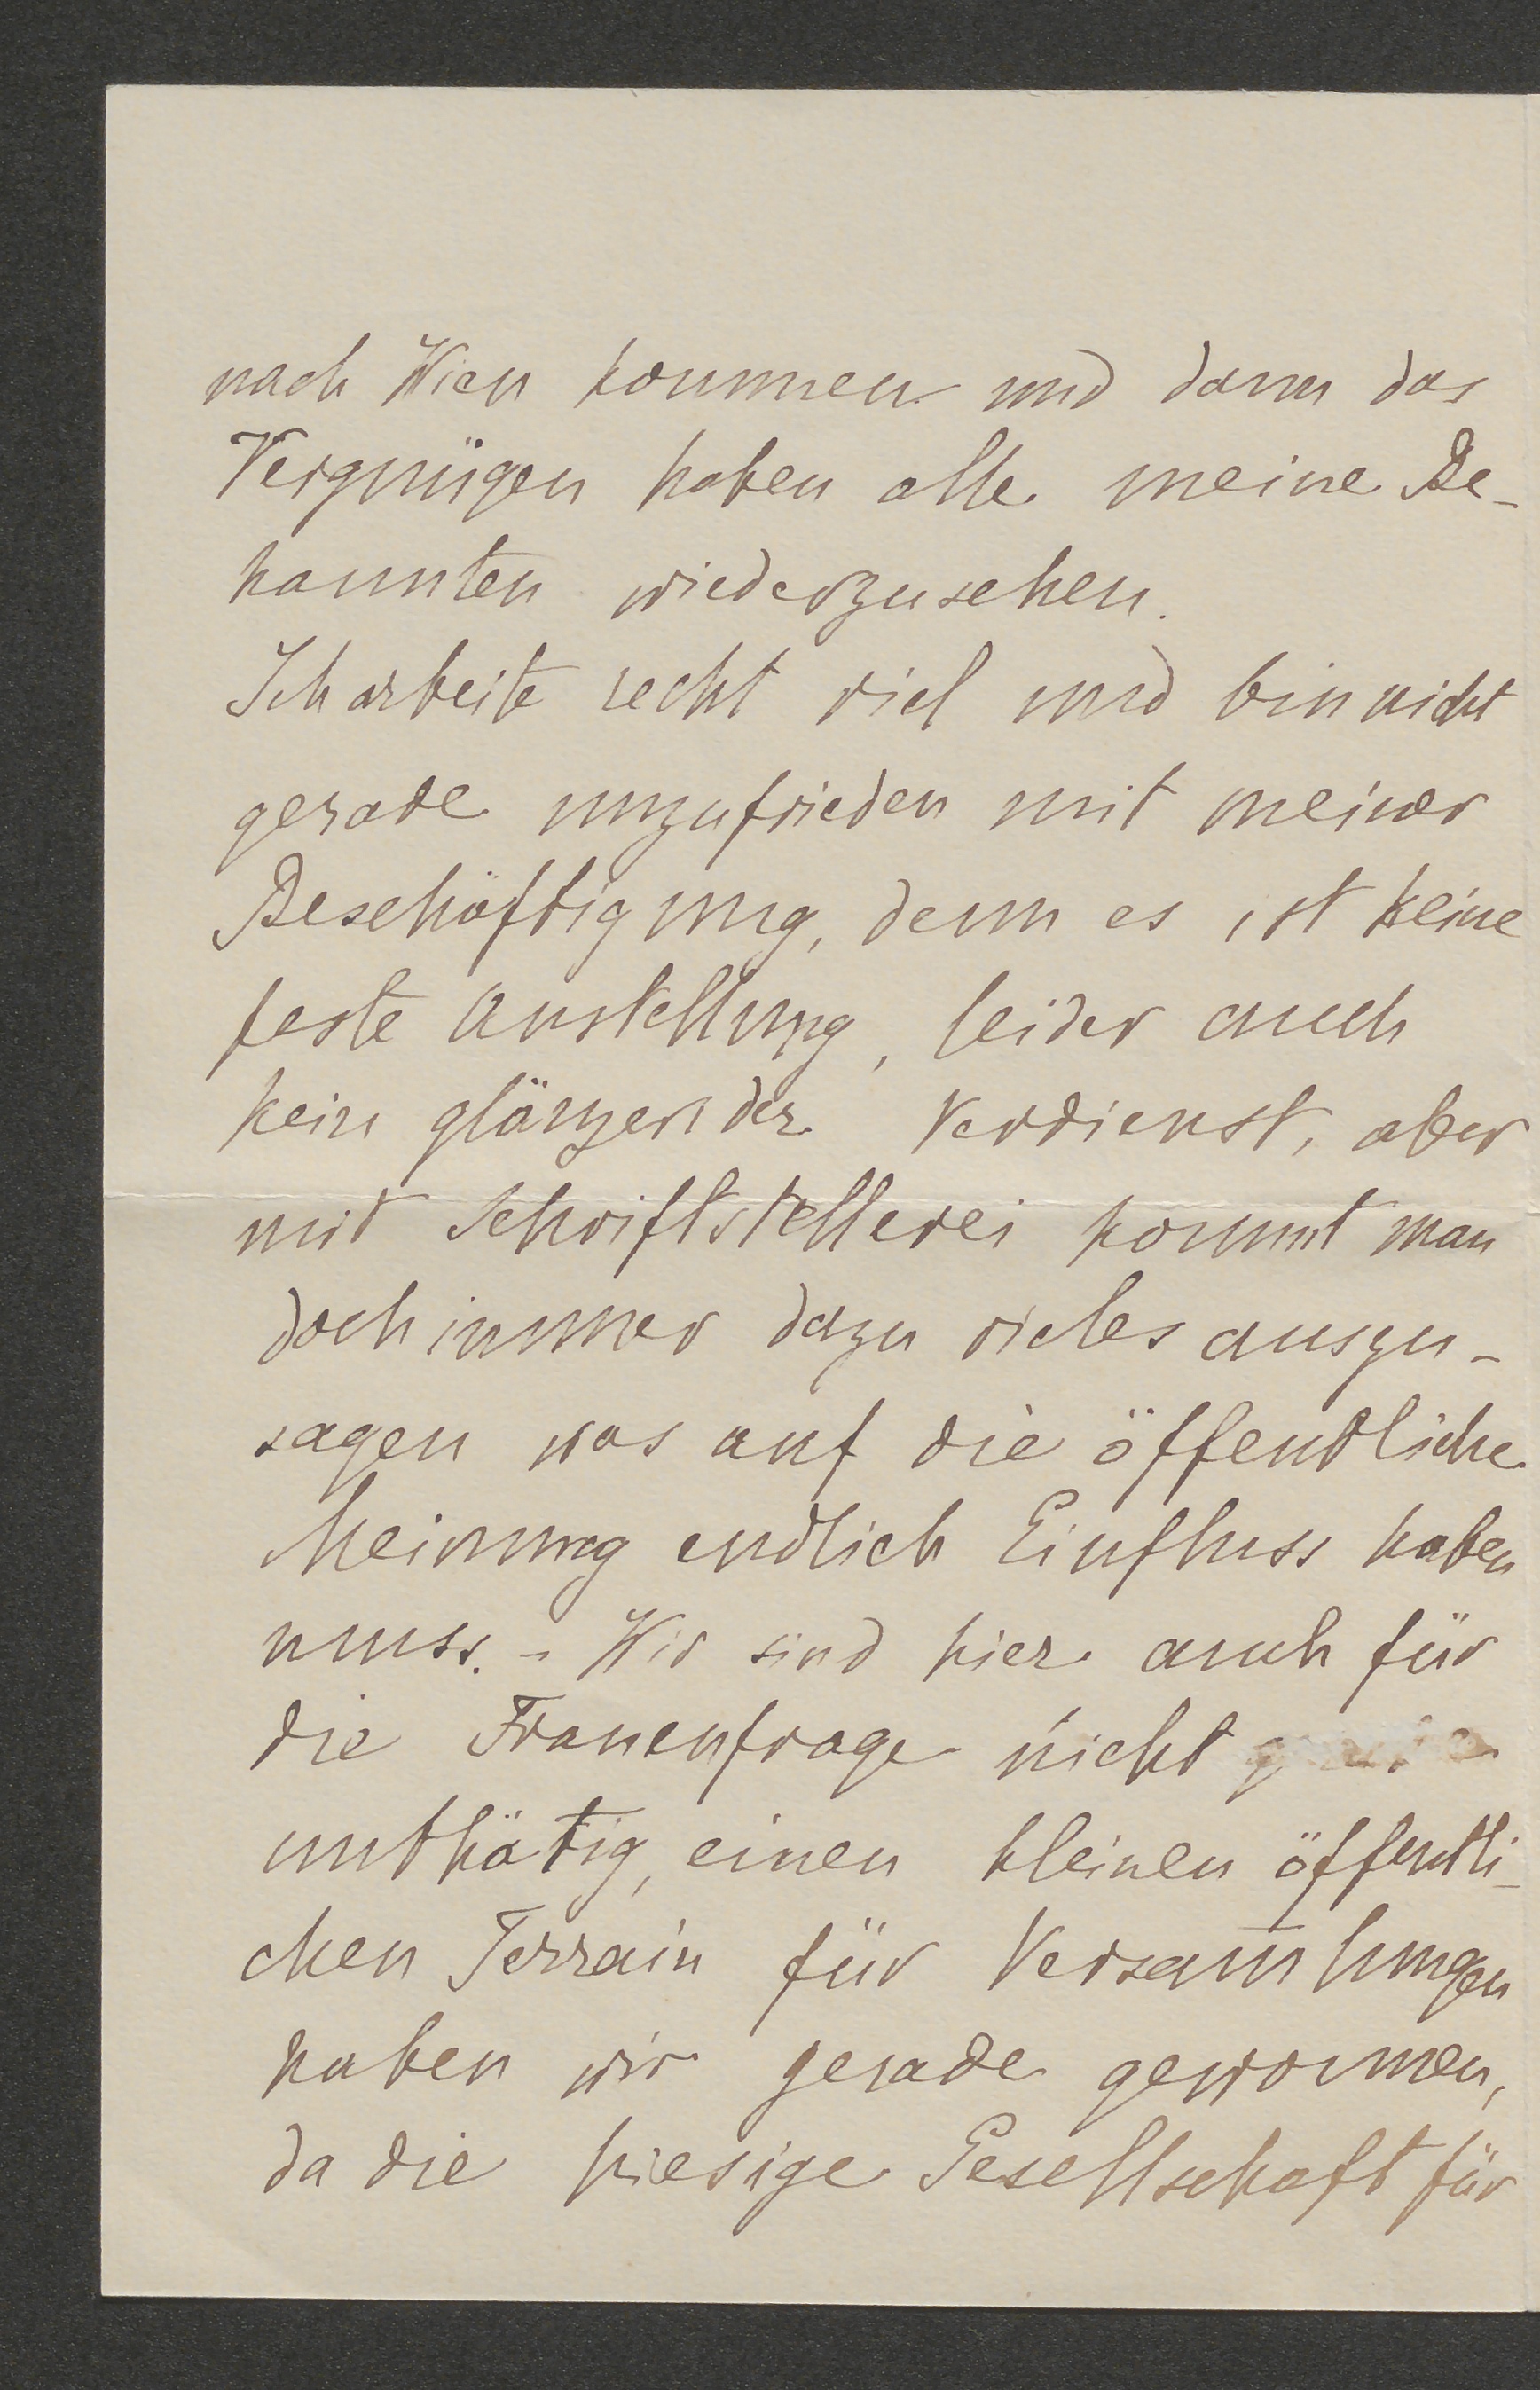 nach Wien kommen und dann das
Vergnügen haben alle meine Be-
kannten wiederzusehen.
Ich arbeite recht viel und bin nicht
gerade unzufrieden mit meiner
Beschäftigung, denn es ist keine
feste Anstellung, leider auch
kein glänzender Verdienst, aber
mit Schriftstellerei kommt man
doch immer dazu vieles auszu-
sagen was auf die öffendliche
Meinung endlich Einfluss haben
muss. - Wir sind hier auch für
die Frauenfrage nicht
unthätig, einen kleinen öffentli-
chen Terrain für Versam̄lungen
haben wir gerade gewonnen,
da die hiesige Gesellschaft für